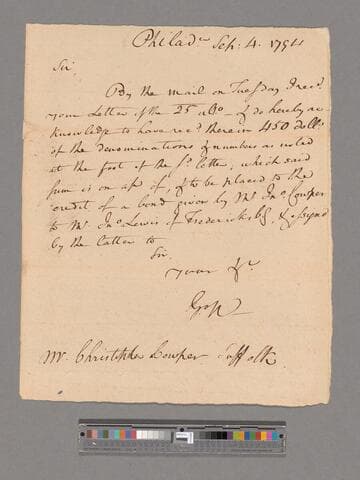 Philad.a Sep: 4. 1794
Sir
By the mail on Tuesday I rec.d
your Letter of the 25 ulto & do hereby ac
knowledge to have rec.d therein 450 doll.s
of the denominations & numbers as noted
at the foot of the s.d letter, which said
sum is on acc.t of, & to be placed to the
credit of a bond given by Mr. Jno. Cowper
to Mr. Jno. Lewis of Fredericksbg. & assigned
by the latter to
Sir
your &c
Mr. Christopher Cowper Suffolk